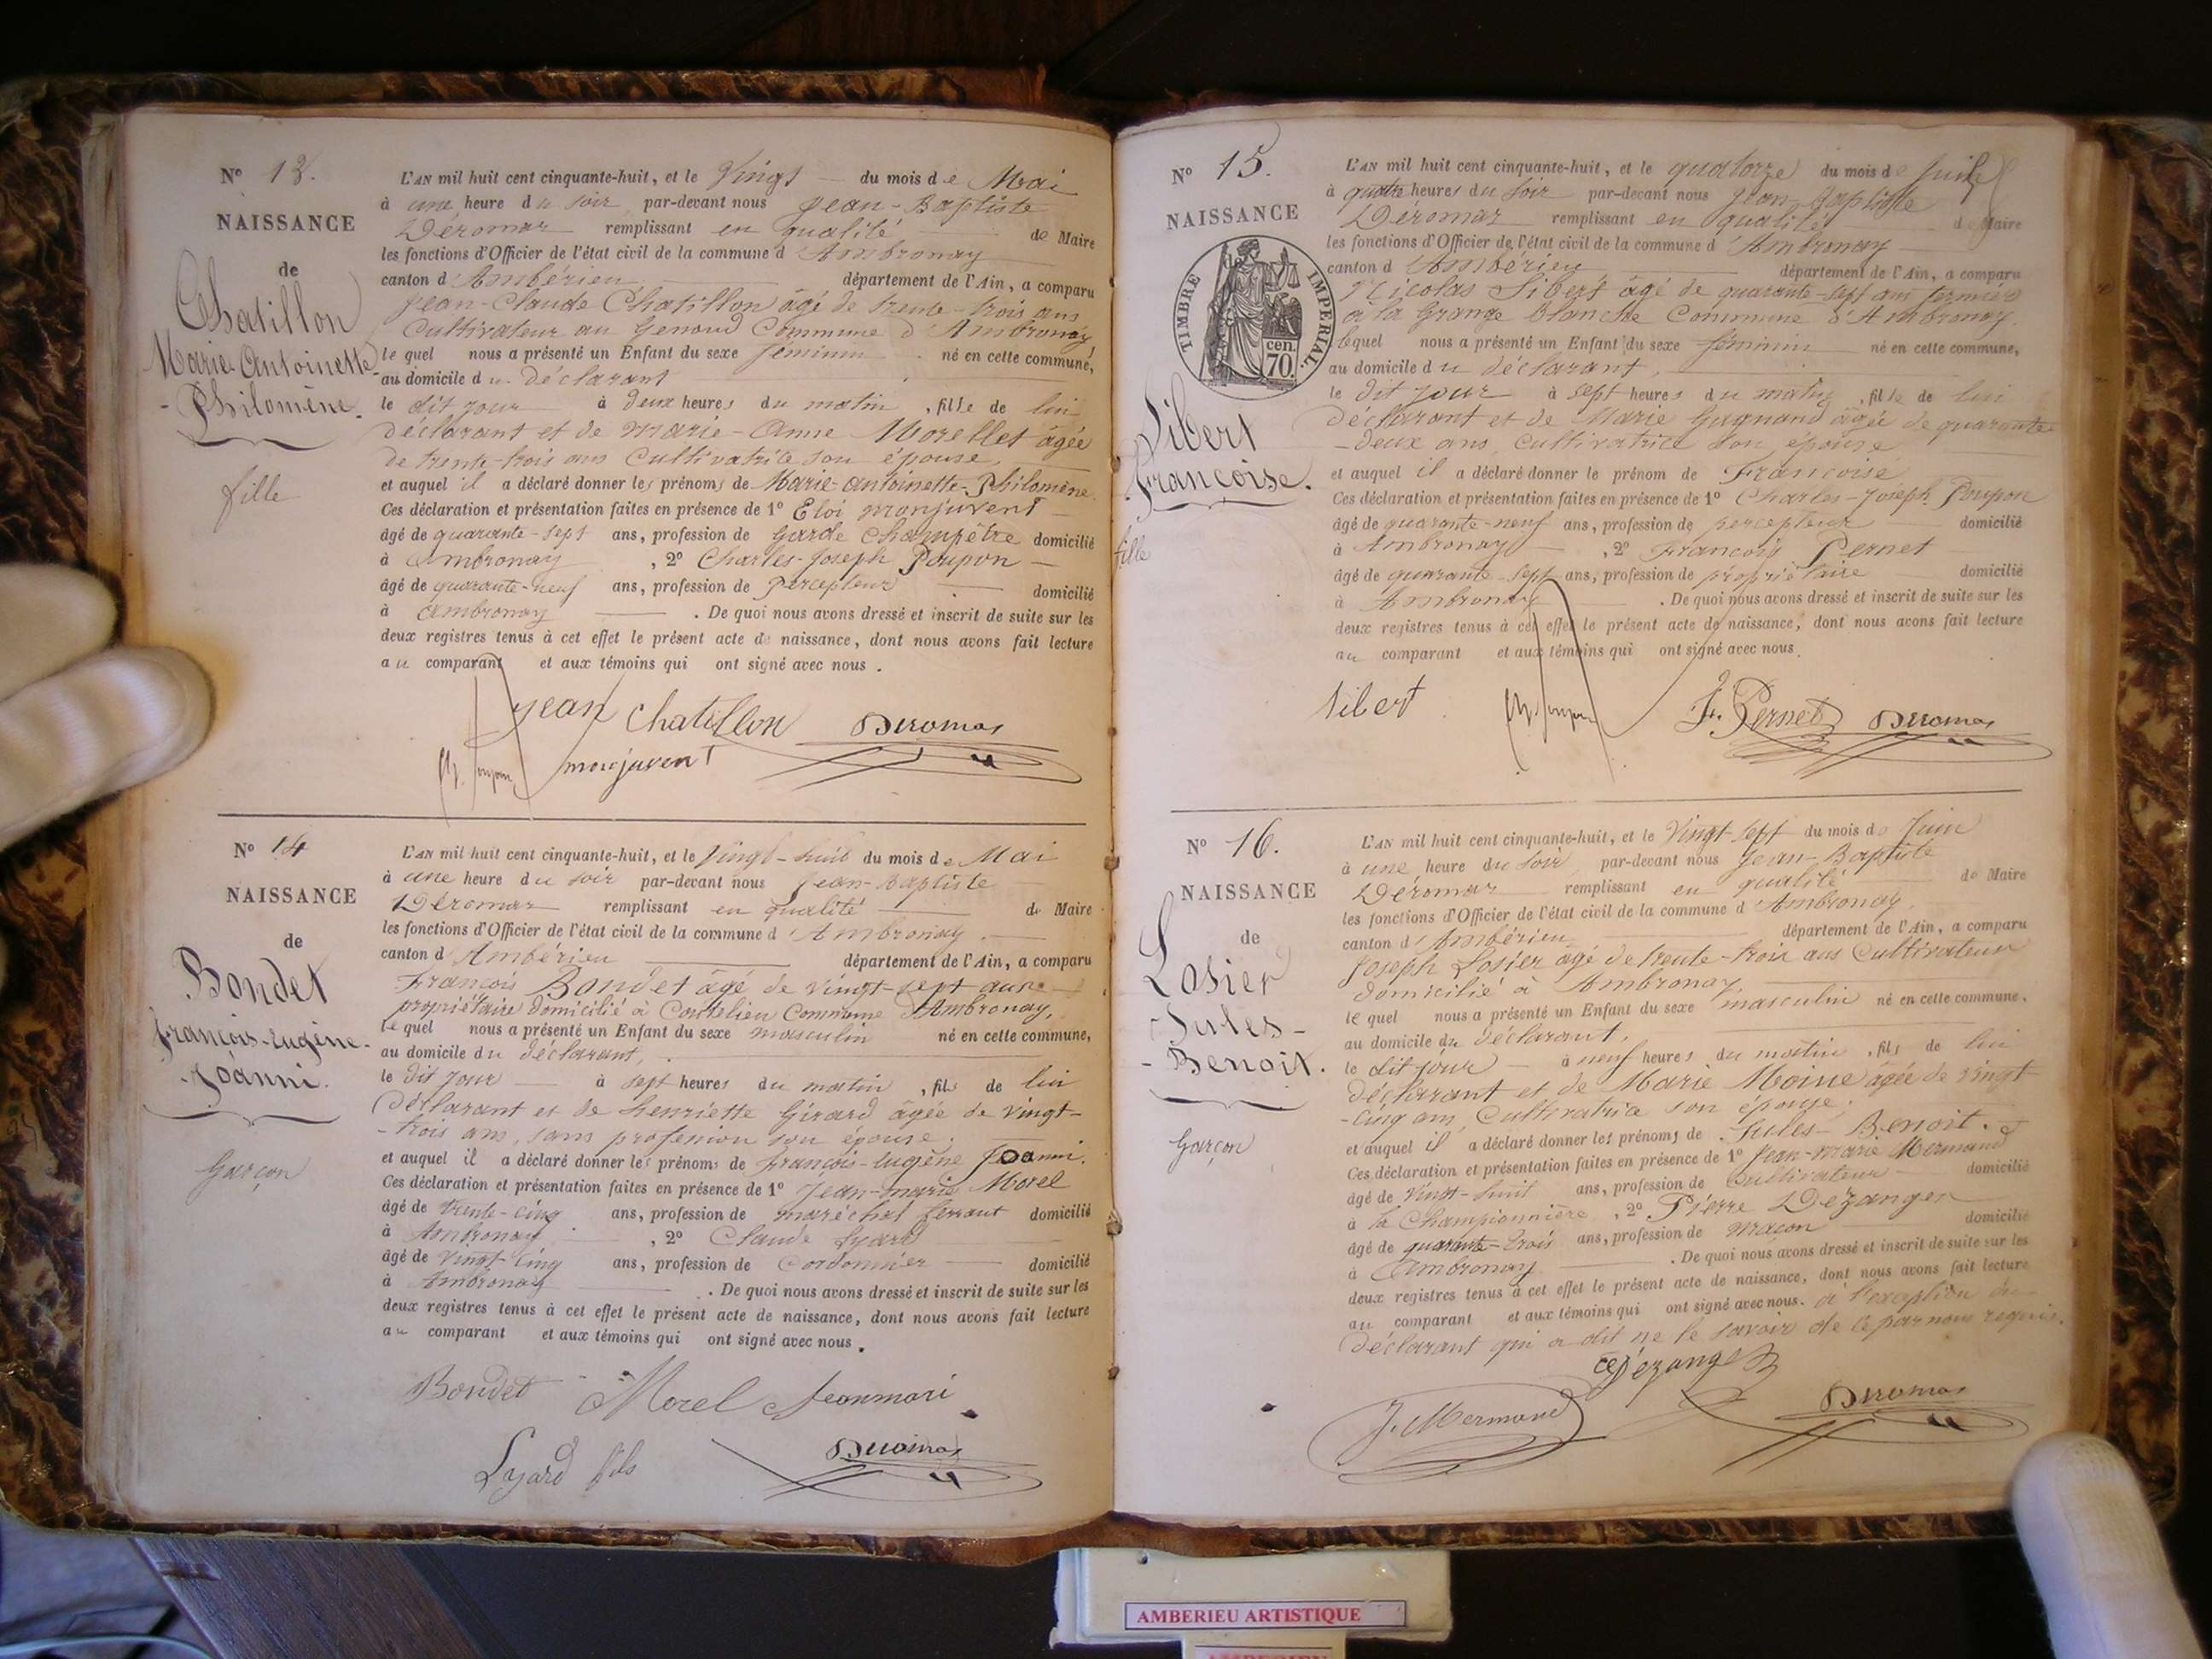 N° 13.
NAISSANCE
de
Chatillon
Marie-Antoinette-
-Philomène.
fille
L'AN mil huit cent cinquante-huit, et le Vingt du mois de Mai
à une heure du soir par-devant nous Jean-Baptiste
Déromas remplissant en qualité de Maire
les fonctions d'Officier de l'état civil de la commune d'Ambronay
canton d'Ambérieu département de l'Ain, a comparu
Jean-Claude Chatillon âgé de trente-trois ans
Cultivateur au Genoud Commune d'Ambronay,
le quel nous a présenté un Enfant du sexe féminin né en cette commune,
au domicile du déclarant
le dit jour à deux heures du matin, fille de lui
déclarant et de Marie-Anne Morellet âgée
de trente-trois ans Cultivatrice son épouse
et auquel il a déclaré donner les prénoms de Marie-Antoinette-Philomène.
Ces déclaration et présentation faites en présence de 1° Eloi Monjuvent
âgé de quarante-sept ans, profession de Garde Champêtre domicilié
à Ambronay, 2° Charles-Joseph Poupon
âgé de quarante-neuf ans, profession de Percepteur domicilié
à Ambronay. De quoi nous avons dressé et inscrit de suite sur les
deux registres tenus à cet effet le présent acte de naissance, dont nous avons fait lecture
au comparant et aux témoins qui ont signé avec nous.
Jean Chatillon Deromas
monjuvent
N° 14
NAISSANCE
de
Bondet
François-Eugène-
-Joanni.
Garçon
L'AN mil huit cent cinquante-huit, et le Vingt-huit du mois de Mai
à une heure du soir par-devant nous Jean-Baptiste
Déromas remplissant en qualité de Maire
les fonctions d'Officier de l'état civil de la commune d'Ambronay.
canton d'Ambérieu département de l'Ain, a comparu
François Bondet âgé de vingt-sept ans
propriétaire domicilié à Coutelieu Commune d'Ambronay,
le quel nous a présenté un Enfant du sexe masculin né en cette commune,
au domicile du déclarant,
le dit jour à sept heures du matin, fils de lui
déclarant et de henriette Girard âgée de vingt-
-trois ans, sans profession son épouse;
et auquel il a déclaré donner les prénoms de François-Eugène Joanni.
Ces déclaration et présentation faites en présence de 1° Jean-marie Morel
âgé de trente-cinq ans, profession de maréchal ferrant domicilié
à Ambronay, 2° Claude Lyard
âgé de vingt-cinq ans, profession de Cordonnier domicilié
à Ambronay. De quoi nous avons dressé et inscrit de suite sur les
deux registres tenus à cet effet le présent acte de naissance, dont nous avons fait lecture
au comparant et aux témoins qui ont signé avec nous.
Bondet Morel Jeanmari
Lyard fils Deromas
N° 15.
NAISSANCE
TIMBRE IMPERIAL
cen. 70.
Sibert
Françoise.
fille
L'AN mil huit cent cinquante-huit, et le quatorze du mois de Juin
à quatre heures du soir par-devant nous Jean Baptiste
Déromas remplissant en qualité de Maire
les fonctions d'Officier de l'état civil de la commune d'Ambronay
canton d'Ambérieu département de l'Ain, a comparu
Nicolas Sibert âgé de quarante-sept ans fermier
à la Grange blanche Commune d'Ambronay.
lequel nous a présenté un Enfant du sexe féminin né en cette commune,
au domicile du déclarant,
le dit jour à sept heures du matin, fille de lui
déclarant et de Marie Gagnand âgée de quarante-
-deux ans, cultivatrice son épouse
et auquel il a déclaré donner le prénom de Françoise
Ces déclaration et présentation faites en présence de 1° Charles-Joseph Poupon
âgé de quarante-neuf ans, profession de percepteur domicilié
à Ambronay, 2° François Pernet
âgé de quarante sept ans, profession de propriétaire domicilié
à Ambronay. De quoi nous avons dressé et inscrit de suite sur les
deux registres tenus à cet effet le présent acte de naissance, dont nous avons fait lecture
au comparant et aux témoins qui ont signé avec nous.
Sibert F. Pernet Deromas
N° 16.
NAISSANCE
de
Losier
Jules-
-Benoit.
Garçon
L'AN mil huit cent cinquante-huit, et le Vingt-sept du mois de Juin
à une heure du soir, par-devant nous Jean-Baptiste
Déromas remplissant en qualité de Maire
les fonctions d'Officier de l'état civil de la commune d'Ambronay.
canton d'Ambérieu département de l'Ain, a comparu
Joseph Losier âgé de trente-trois ans Cultivateur
domicilié à Ambronay,
le quel nous a présenté un Enfant du sexe masculin né en cette commune,
au domicile du déclarant,
le dit jour à neuf heures du matin, fils de lui
déclarant et de Marie Moine âgée de vingt
-cinq ans, Cultivatrice son épouse;
et auquel il a déclaré donner les prénoms de Jules-Benoit.
Ces déclaration et présentation faites en présence de 1° Jean-marie Mermand
âgé de vingt-huit ans, profession de Cultivateur domicilié
à la Championnière, 2° Pierre Dézanges
âgé de quarante-trois ans, profession de maçon domicilié
à Ambronay. De quoi nous avons dressé et inscrit de suite sur les
deux registres tenus à cet effet le présent acte de naissance, dont nous avons fait lecture
au comparant et aux témoins qui ont signé avec nous. à l'exception du
déclarant qui a dit ne le savoir de ce par nous requis.
Dézanges
J. Mermand Deromas
AMBERIEU ARTISTIQUE